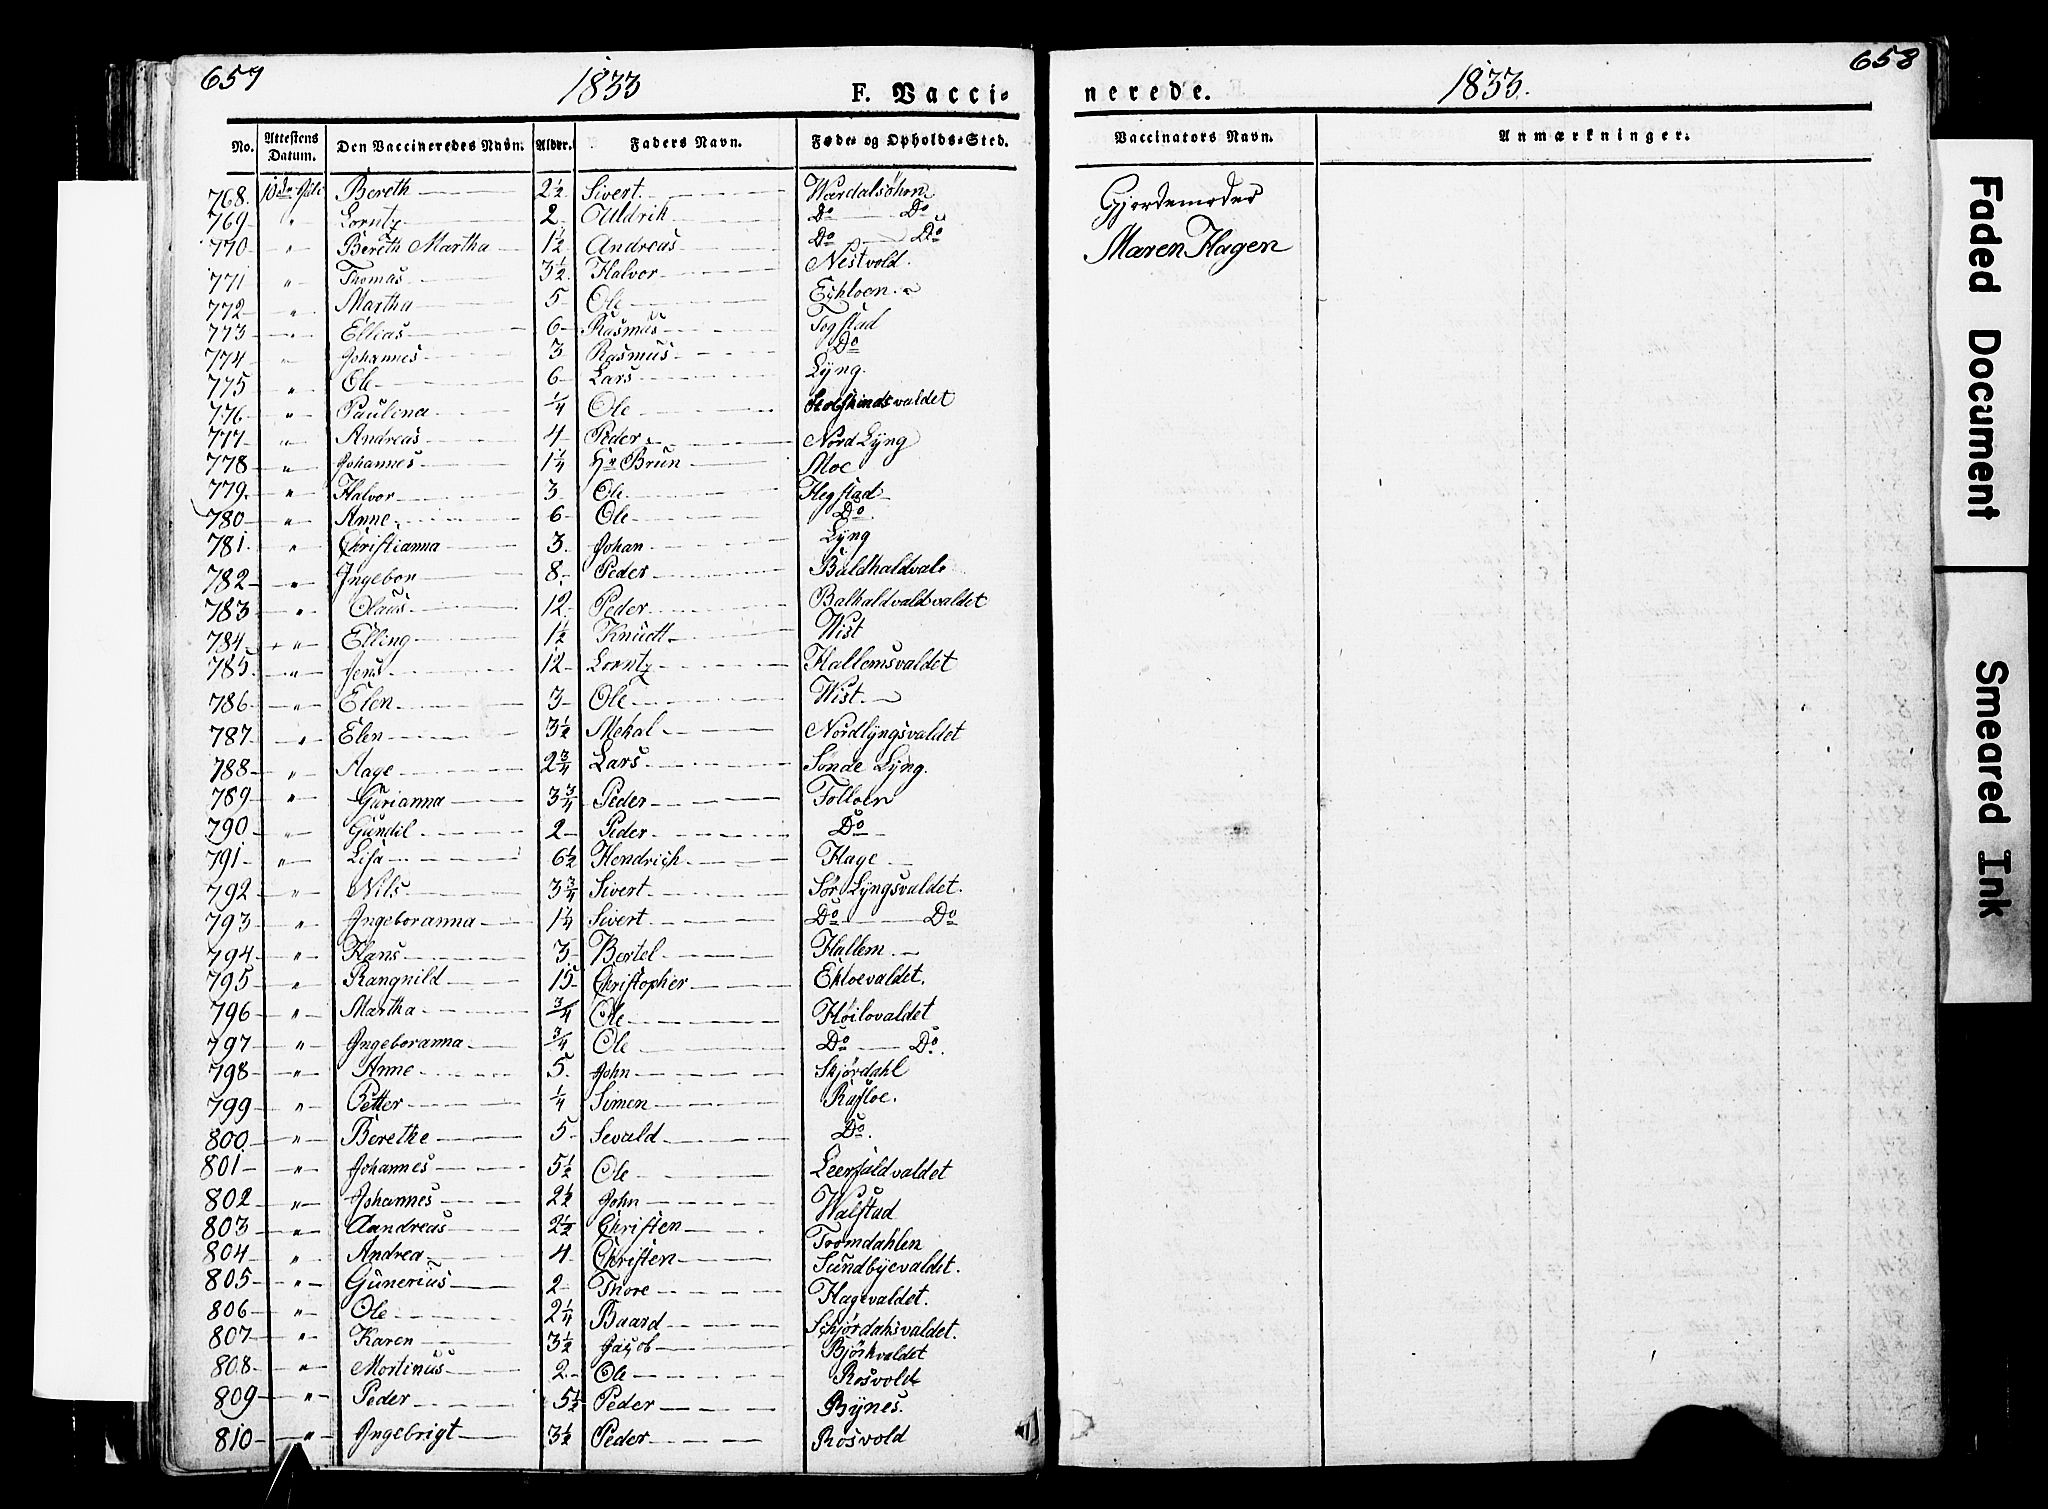 657
1833
F. Vacci-
No. Attestens Datum. Den Vaccineredes Navn. Alder. Faders Navn. Føde- og Opholds-Sted.
768. 10de Juli Bereth 2½ Sivert Wærdalsøhrn
769 " Lorntz 2 Uldrik Do Do
770 " Bereth Martha 1½ Andreas Do Do
771 " Thomas 3½ Halvor Nestvold.
772 " Martha 5 Ole Echloen
773 " Ellias 6 Rasmus Togstad
774 " Johannes 3 Rasmus Do
775 " Ole 6 Lars Lÿng.
776 " Paulina ¼ Ole
777 " Andreas 4 Peder Nord Lÿng
778 " Johannes 1¼ Hr Brun Moe
779. " Halvor 3 Ole Hegstad
780 " Anne 6 Ole Do
781 " Christianna 3 Johan Lÿng
782 " Ingebor 8 Peder Baldhaldval
783 " Olaus 12 Peder Balhaldvaldvaldet
784 " Elling 1½ Knudt Wist
785 " Jens 12 Lorntz Hallemsvaldet
786 " Elen 3 Ole Wist
787 " Elen 3½ Mekal Nordlÿngsvaldet
788 " Aage 2¾ Lars Sønde Lÿng.
789 " Gurianna 3¾ Peder Folloen
790 " Gundil 2 Peder Do
791 " Lisa 6½ Hendrich Hage
792 " Nils 3¾ Sivert Sør Lyngsvaldet.
793 " Ingeboranna 1¼ Sivert Do Do
794 " Hans 3 Bertel Hallem
795 " Rangnild 15 Christopher Ekloevaldet.
796 " Martha ¾ Ole Høilovaldet
797 " Ingeboranna ¾ Ole Do Do.
798 " Anne 5 John Skjørdahl
799 " Petter ¼ Simen Kusloe.
800 " Berethe 5 Sevald Do.
801 " Johannes 5½ Ole Leerfaldvaldet
802 " Johannes 2½ John Walstad
803 " Aandreas 2½ Christen Tromdahlen
804 " Andrea 4 Christen Sundbÿevaldet.
805 " Gunerius 2 Thore Hagevaldet.
806 " Ole 2¼ Baard Schjørdahsvaldet.
807 " Karen 3½ Jacob Bjørkvaldet
808 " Mortinus 2 Ole Rosvold
809 " Peder 5½ Peder Bÿnes.
810 " Ingebrigt 3½ Peder Rosvold
658
nerede.
1833.
Vaccinators Navn. Anmærkninger.
Gjordemoder
Maren Hagen
Faded Document
Smeared Ink